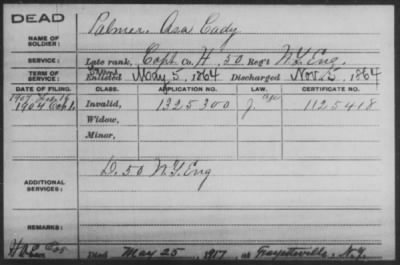 DEAD
NAME OF SOLDIER: Palmer, Asa Cady
SERVICE: Late rank, Capt. Co. H, 50 Reg't N.Y. Eng.
TERM OF SERVICE: Enlisted May 5, 1864 Discharged Nov. 5, 1864
DATE OF FILING. CLASS. APPLICATION NO. LAW. CERTIFICATE NO.
1904 Invalid, 1325300 1125418
Widow,
Minor,
ADDITIONAL SERVICES: D. 50 N.Y. Eng
REMARKS:
Died May 25, 1917, at Fayetteville, N.Y.